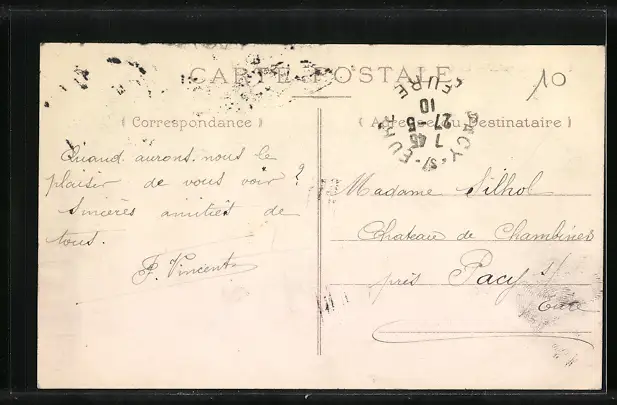 CARTE POSTALE
( Correspondance )
( Adresse du Destinataire )
Quand aurons nous le
plaisir de vous voir ?
Sincères amitiés de
tous.
F. Vincent
Madame Silhol
Chateau de Chambines
près Pacy s/
Eure
PACY-S/-EURE
7 45
27 - 5
10
EURE
10